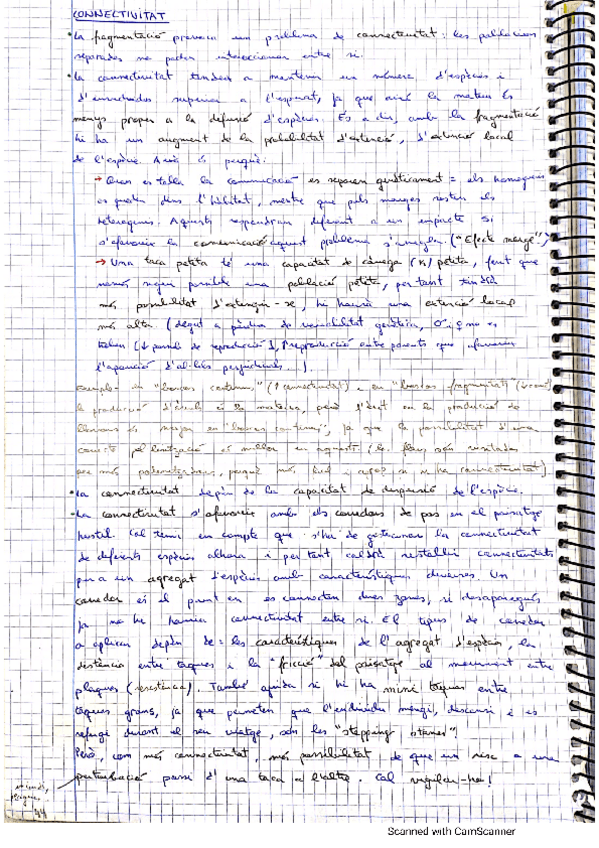 CONNECTIVITAT
• La fragmentació provoca un problema de connectivitat: les poblacions
separades no poden interaccionar entre si.
• La connectivitat tendeix a mantenir un número d'espècies i
d'individus superior a l'esperat, ja que així la mateixa és
menys propera a la d'espècies. És a dir, amb la fragmentació
hi ha un augment de la probabilitat d'extinció, d'extinció local
de l'espècie. Això és perquè:
→ Quan es talla la comunicació es separen genèticament = els homogenis
es queden dins l'hàbitat, mentre que pels marges resten els
heterogenis. Aquests respondran diferent a un impacte. Si
s'afavoreix la comunicació aquest problema s'arregla. ("Efecte marge")
→ Una taca petita té una capacitat de càrrega (K) petita, fent que
només sigui possible una població petita, per tant tindrà
més possibilitat d'extingir-se, hi haurà una extinció local
més alta (degut a pèrdua de variabilitat genètica, ♂ i ♀ no es
troben (↓ de reproducció), ↑ reproducció entre parents que afavoreix
l'aparició d'al·lels perjudicials...).
Exemple: en "boscos continus" (↑ connectivitat) i en "boscos fragmentats"
la producció d'  és la mateixa, però l'èxit en la producció de
llavors és major en "boscos continus", ja que la possibilitat d'una
correcta pol·linització és millor en aquests i les flors són visitades
per més pol·linitzadors, perquè més
• La connectivitat depèn de la capacitat de dispersió de l'espècie.
• La connectivitat s'afavoreix amb els corredors de pas en el paisatge
hostil. Cal tenir en compte que s'ha de gestionar la connectivitat
de diferents espècies alhora i per tant caldrà restablir connectivitats
per a un agregat d'espècies amb característiques diverses. Un
corredor és el punt en es connecten dues zones, si desaparegués
ja no hi hauria connectivitat entre si. El tipus de corredor
a aplicar depèn de: les característiques de l'agregat d'espècies, la
distància entre taques i la "fricció" del paisatge al moviment entre
plaques (resistència). També ajuda si hi ha mini taques entre
taques grans, ja que permeten que l'individu mengi, descansi i es
refugi durant el seu viatge, són les "stepping stones".
Però, com més connectivitat, més possibilitat de que un risc o una
pertorbació passi d'una taca a l'altre. Cal vigilar-ho!
incendis,
plagues
Scanned with CamScanner